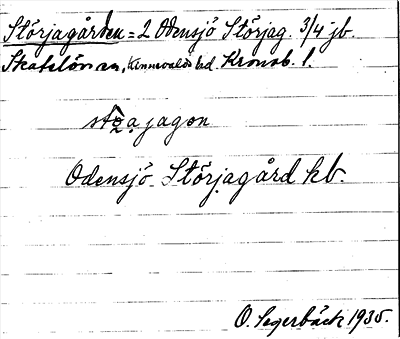 Störjagården = 2 Odensjö Störjag. 3/4 jb.
Skatelövs sn, Kinnevalds hd. Kronob. l.
jagon
Odensjö Störjagård kb.
O. Segerbäck 1935.